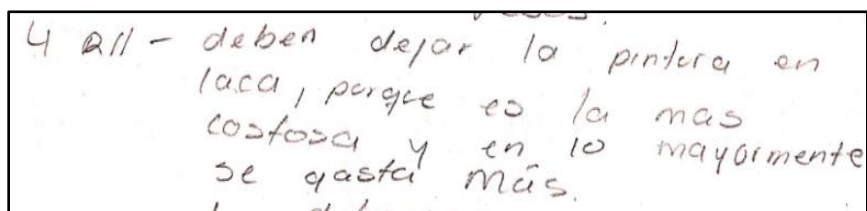 4 all - deben dejar la pintura en
laca, porque es la mas
costosa y en lo mayormente
se gasta más.